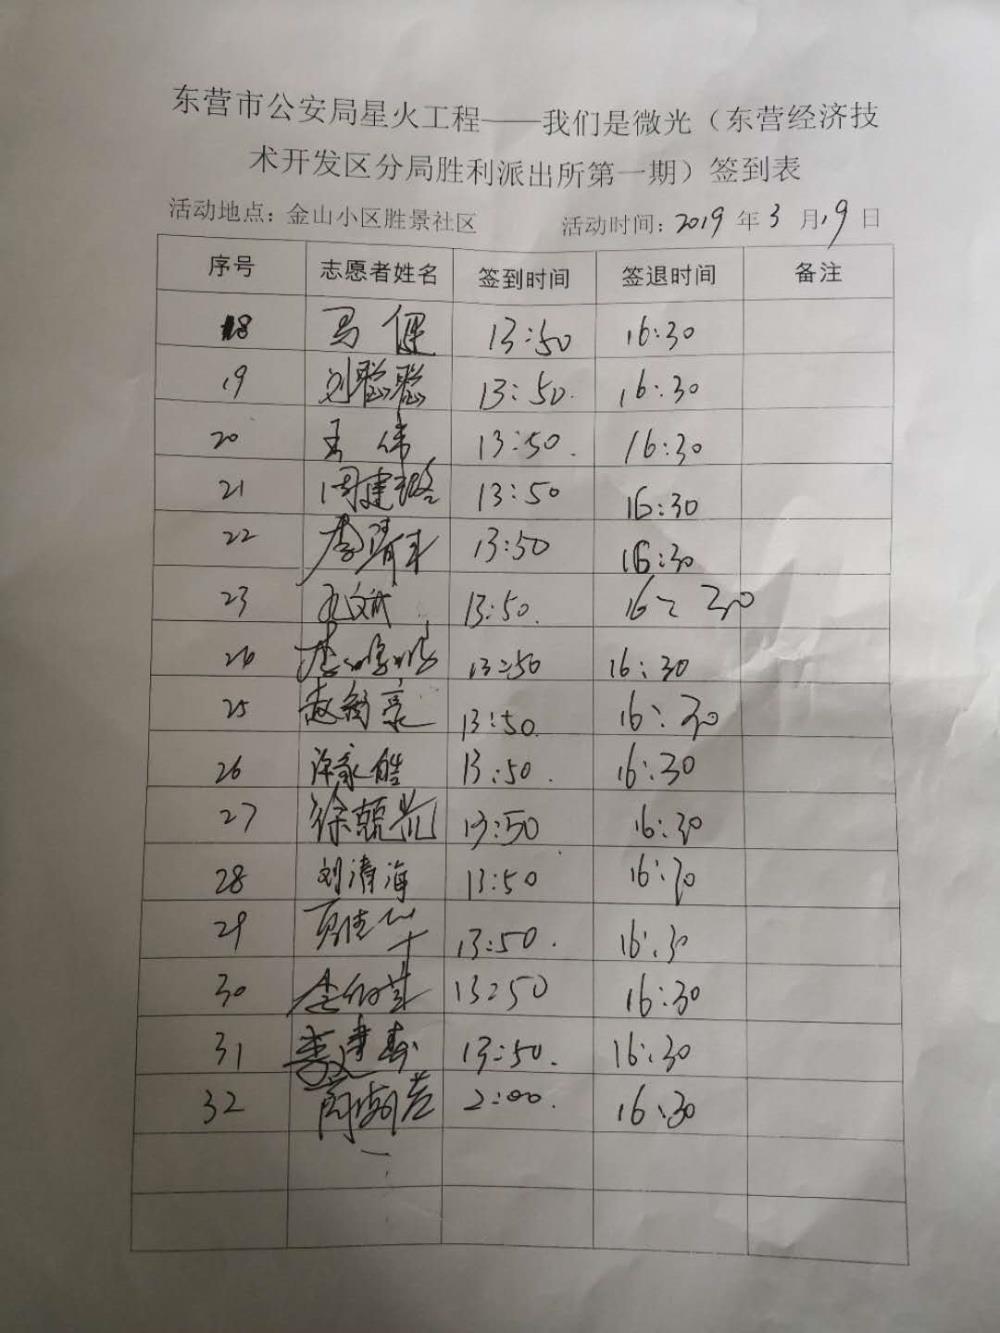 东营市公安局星火工程——我们是微光（东营经济技
术开发区分局胜利派出所第一期）签到表
活动地点：金山小区胜景社区 活动时间：2019 年 3 月 19 日
序号 志愿者姓名 签到时间 签退时间 备注
18 马健 13:50 16:30
19 刘聪聪 13:50. 16:30
20 王伟 13:50. 16:30
21 周建璐 13:50 16:30
22 13:50 16:30
23 13:50. 16:30
24 13:50 16:30
25 13:50. 16:30
26 许家皓 13:50. 16:30
27 13:50 16:30
28 刘清海 13:50 16:30
29 13:50. 16:30
30 13:50 16:30
31 13:50. 16:30
32 2:00. 16:30